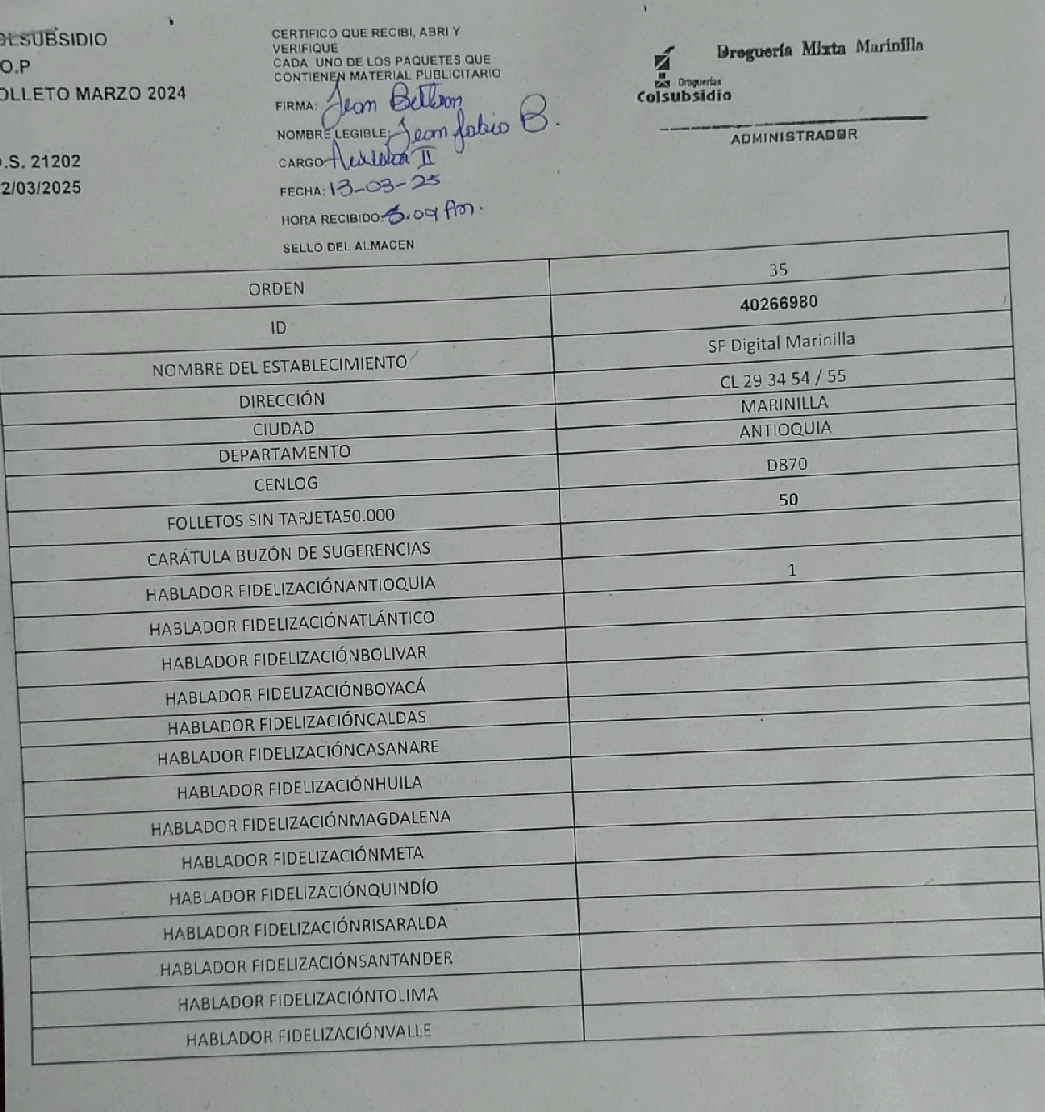 OLSUBSIDIO
O.P
OLLETO MARZO 2024
.S. 21202
2/03/2025
CERTIFICO QUE RECIBI, ABRI Y
VERIFIQUE
CADA UNO DE LOS PAQUETES QUE
CONTIENEN MATERIAL PUBLICITARIO
FIRMA: Jean Beltran
NOMBRE LEGIBLE: Jean fabio B.
CARGO: II
FECHA: 13-03-25
HORA RECIBIDO:
SELLO DEL ALMACEN
Droguería Mixta Marinilla
Droguerías
Colsubsidio
ADMINISTRADOR
ORDEN 35
ID 40266980
NOMBRE DEL ESTABLECIMIENTO SF Digital Marinilla
DIRECCIÓN CL 29 34 54 / 55
CIUDAD MARINILLA
DEPARTAMENTO ANTIOQUIA
CENLOG DB70
FOLLETOS SIN TARJETA50.000 50
CARÁTULA BUZÓN DE SUGERENCIAS
HABLADOR FIDELIZACIÓNANTIOQUIA 1
HABLADOR FIDELIZACIÓNATLÁNTICO
HABLADOR FIDELIZACIÓNBOLIVAR
HABLADOR FIDELIZACIÓNBOYACÁ
HABLADOR FIDELIZACIÓNCALDAS
HABLADOR FIDELIZACIÓNCASANARE
HABLADOR FIDELIZACIÓNHUILA
HABLADOR FIDELIZACIÓNMAGDALENA
HABLADOR FIDELIZACIÓNMETA
HABLADOR FIDELIZACIÓNQUINDÍO
HABLADOR FIDELIZACIÓNRISARALDA
HABLADOR FIDELIZACIÓNSANTANDER
HABLADOR FIDELIZACIÓNTOLIMA
HABLADOR FIDELIZACIÓNVALLE